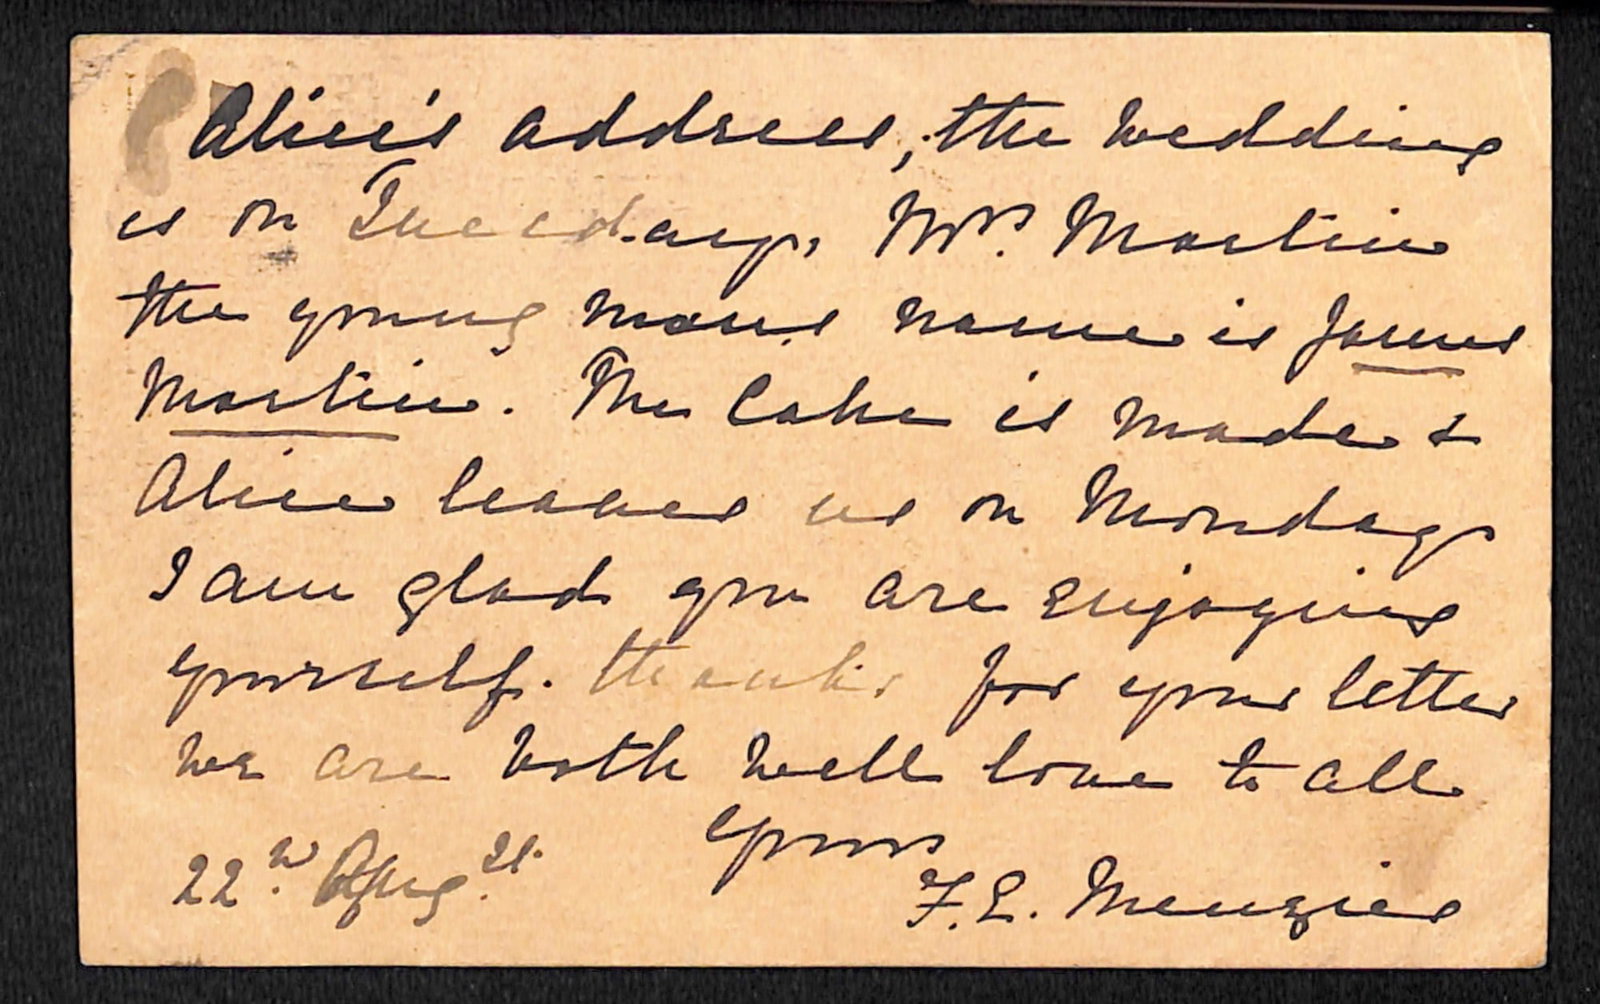 Alice's address, the wedding
is on Tuesday, Mrs. Martin
the young mans name is James
Martin. The Cake is made &
Alice leaves us on Monday
I am glad you are enjoying
yourself. thanks for your letter
we are both well love to all
Yours
22nd Augst.
F. E. Menzies